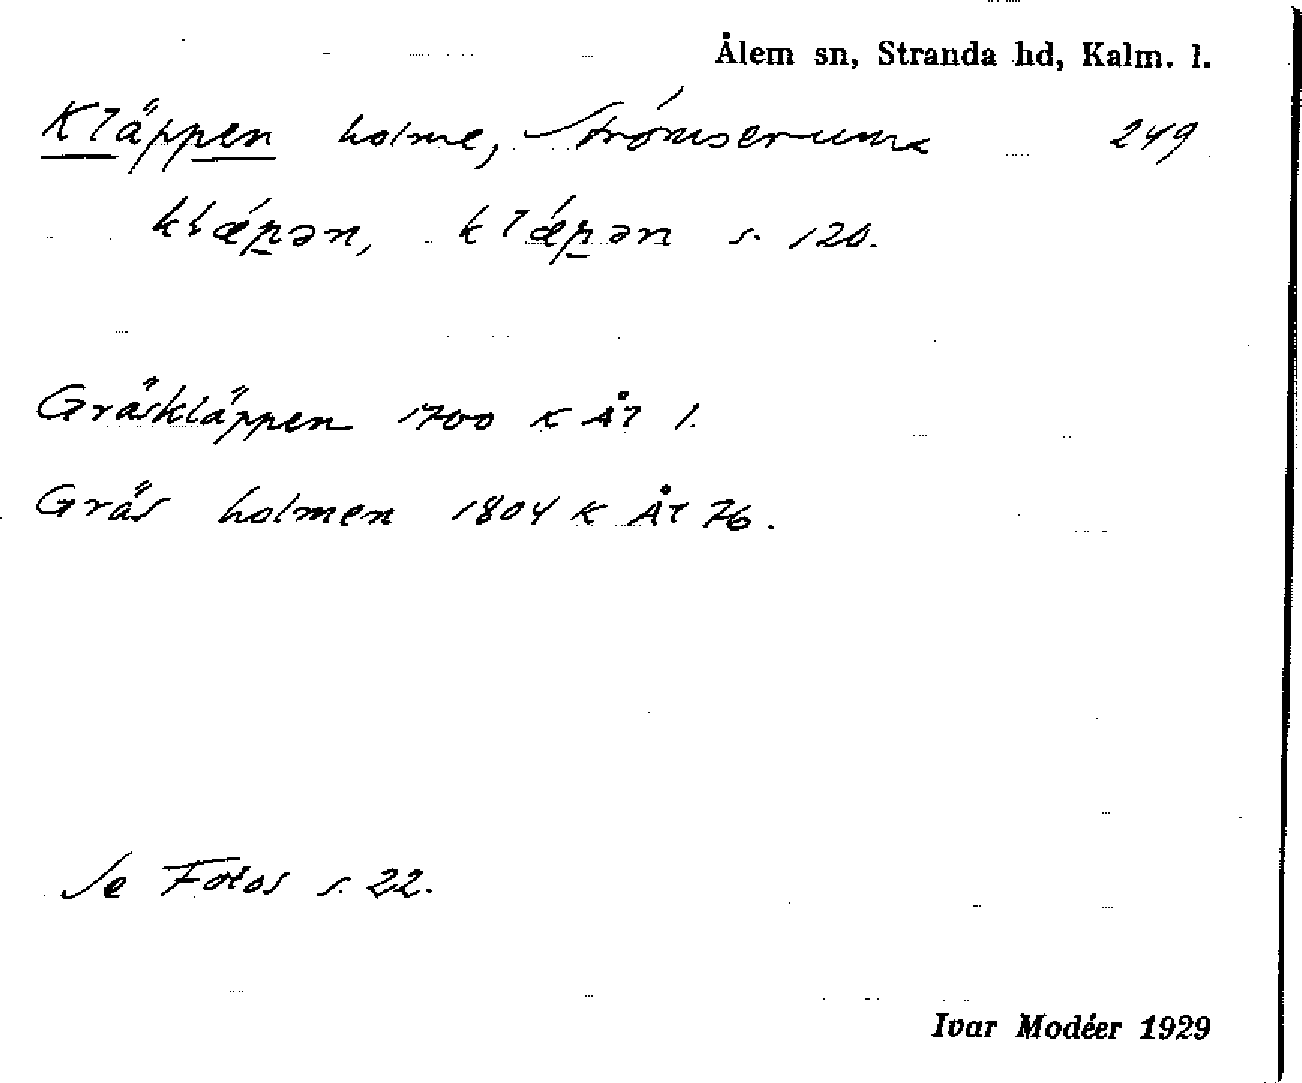 Ålem sn, Stranda hd, Kalm. l.
Kläppen holme, Strömserum 249
klǽp̲ən, klǽp̲ən s. 120.
Gräskläppen 1700 K Ål 1.
Gräs holmen 1804 K Ål 76.
Se Fotos s. 22.
Ivar Modéer 1929